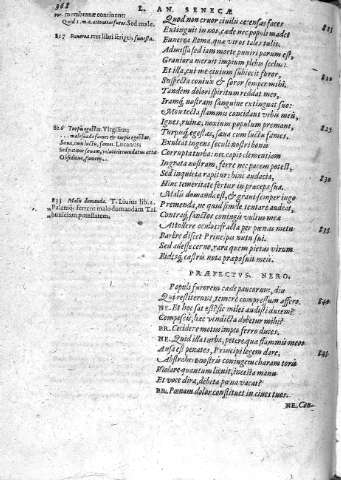 368
L. AN. SENECÆ
Quod non cruor civilis accensas faces
Extinguit in nos, cæde nec populi madet
Funerea Roma, quæ viros tales tulit.
Admissa sed iam morte puniri parum est,
Graviora meruit impium plebis scelus:
Et illa, cui me civium subiecit furor,
Suspecta coniux & soror semper mihi,
Tandem dolori spiritum reddat meo,
Iramq; nostram sanguine extinguat suo:
Mox tecta flammis concidant vrbis meis,
Ignes, ruinæ, noxium populum premant,
Turpisq; egestas, sæva cum luctu fames.
Exultat ingens seculi nostri bonis
Corrupta turba: nec capit clementiam
Ingrata nostram, ferre nec pacem potest,
Sed inquieta rapitur: hinc audacia,
Hinc temeritate fertur in præceps sua.
Malis domanda est, & gravi semper iugo
Premenda, ne quid simile tentare audeat,
Contraq; sanctos coniugis vultus meæ
Attollere oculos: fracta per pœnas metu
Parere discet Principis nutu sui.
Sed adesse cerno, rara quem pietas virum
Fidesq; castris nota præposuit meis.
825
830
835
PRÆFECTUS. NERO.
Populi furorem cæde paucorum, diu
Qui restiterunt, temere compressum affero. 840
NE. Et hoc sat est? sic miles audisti ducem?
Compescis, hæc vindicta debetur mihi?
PR. Cecidere motus impio ferro duces.
NE. Quid illa turba, petere quæ flammis meos
Ausa est penates, Principi legem dare, 845
Abstrahere nostris coniugem charam toris
Violare quantum licuit, incesta manu
Et voce dira, debita pœna vacat?
PR. Pœnam dolor constituet in cives tuos.
NE. Con-
826 Turpis egestas. Virgilius:
833 Malis domanda. T. Livius lib. 2.